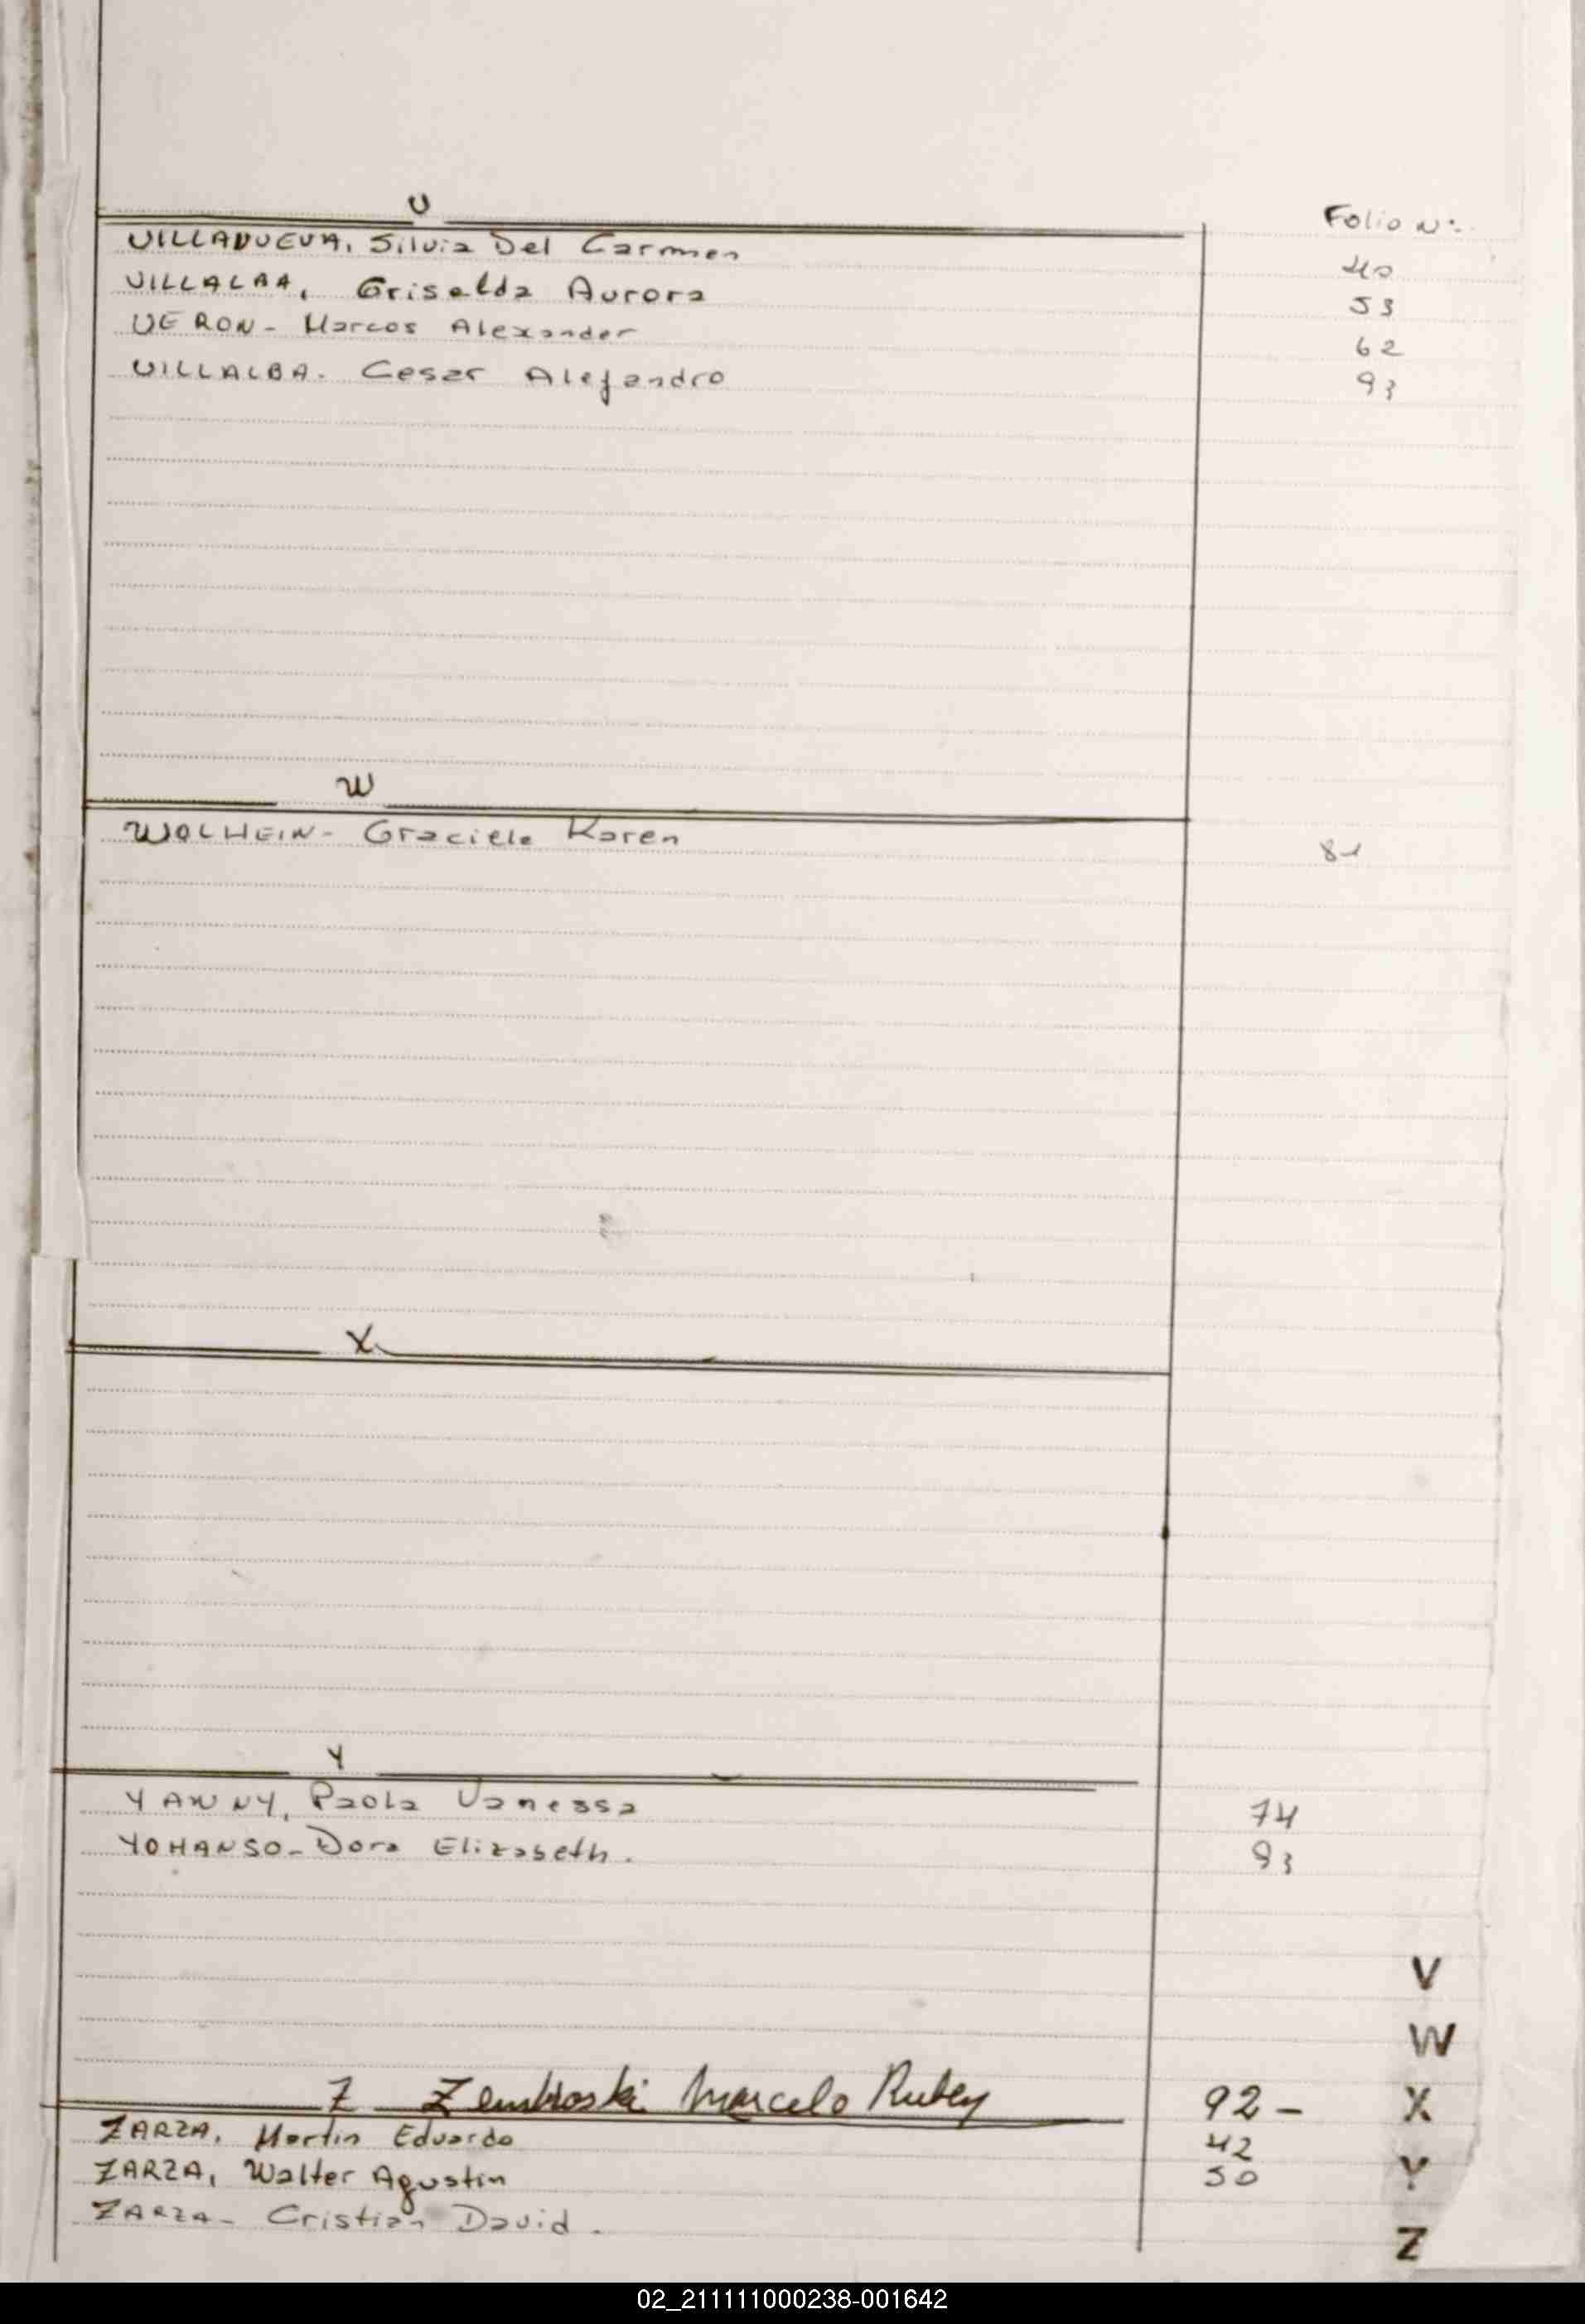 V
Folio N:
VILLANUEVA, Silvia Del Carmen 40
VILLALBA, Griselda Aurora 53
VERON- Marcos Alexander 62
VILLALBA. Cesar Alejandro 93
W
WOLHEIN- Graciela Karen 81
X
Y
YANNY, Paola Vanessa 74
YOHANSO- Dora Elizabeth. 93
V
W
Z Marcelo Ruben 92- X
ZARZA, Martin Eduardo 42
ZARZA, Walter Agustin 50 Y
ZARZA- Cristian David.
Z
02_211111000238-001642